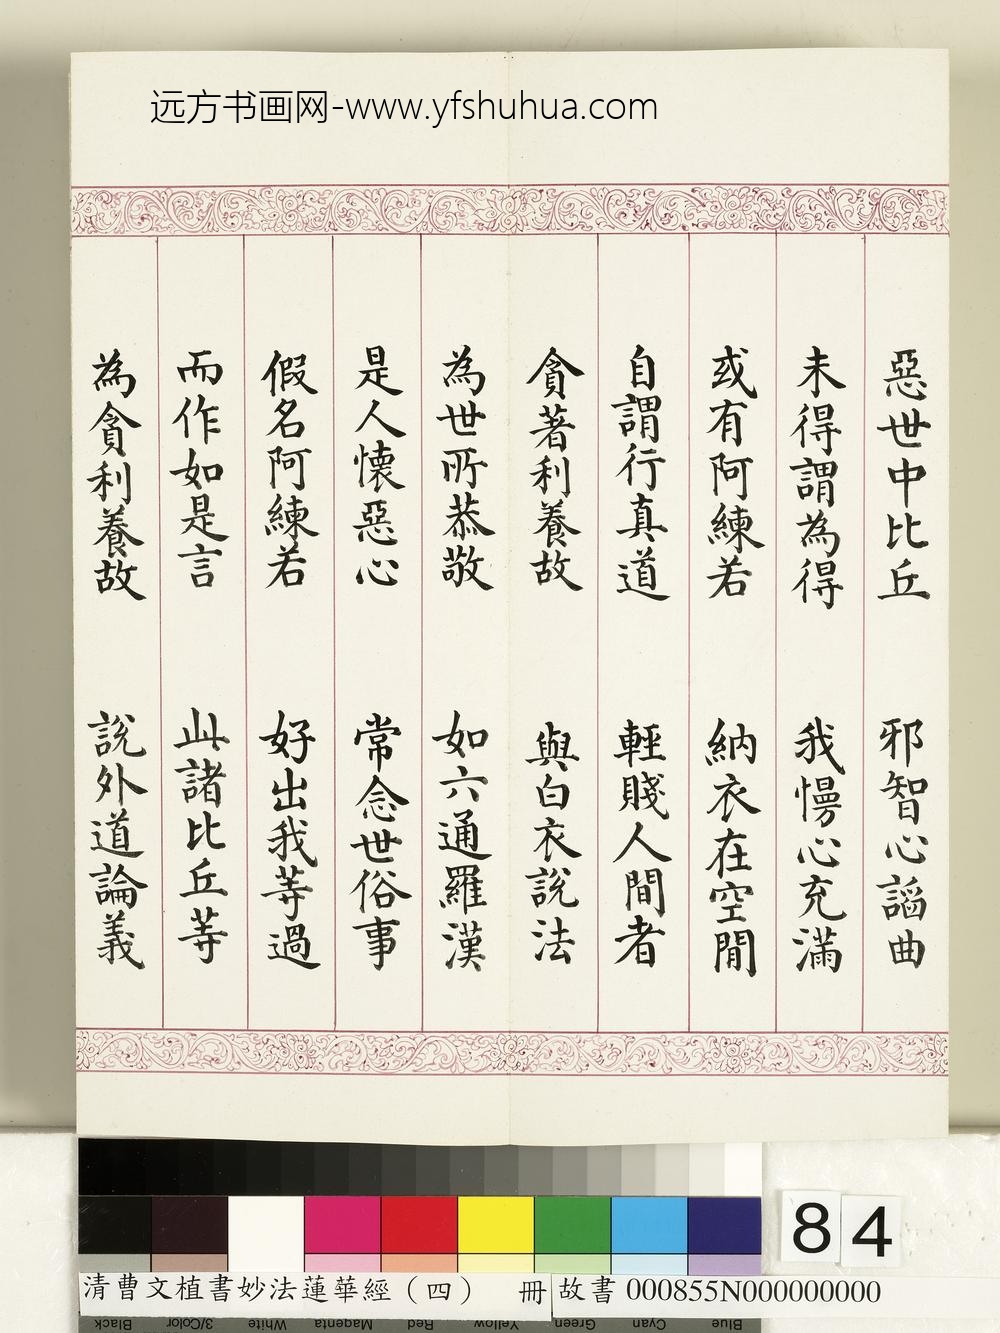 远方书画网-www.yfshuhua.com
惡世中比丘 邪智心謟曲
未得謂為得 我慢心充滿
或有阿練若 納衣在空閒
自謂行真道 輕賤人間者
貪著利養故 與白衣說法
為世所恭敬 如六通羅漢
是人懷惡心 常念世俗事
假名阿練若 好出我等過
而作如是言 此諸比丘等
為貪利養故 說外道論義
84
清曹文植書妙法蓮華經（四） 冊
故書 000855N000000000
Black 3/Color White Magenta Red Yellow Green Cyan Blue